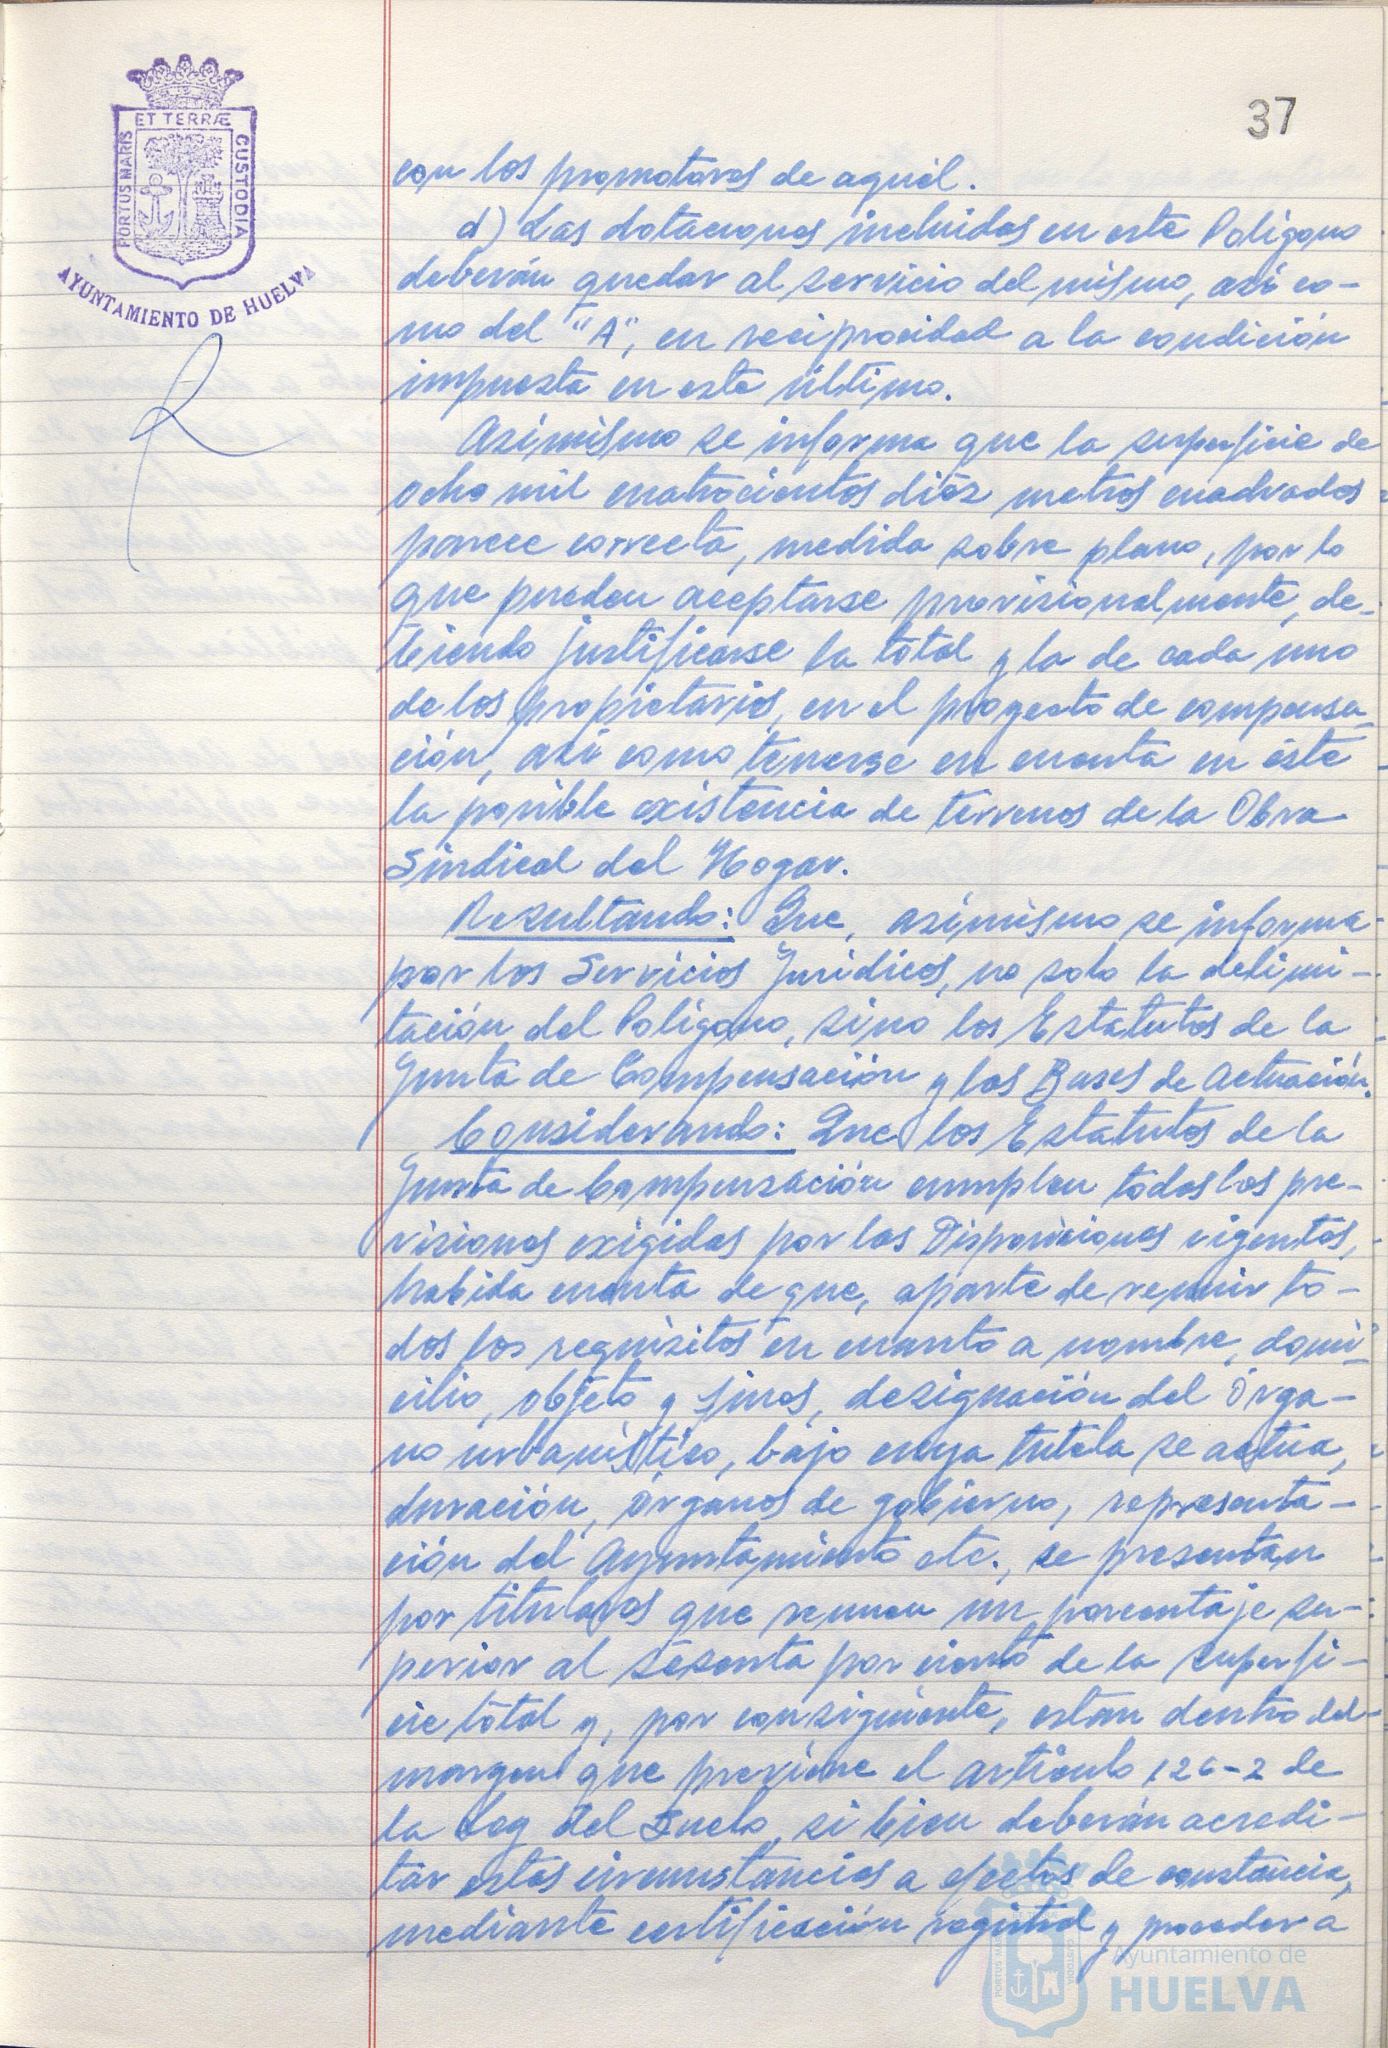 ET TERRÆ
PORTUS MARIS
CUSTODIA
AYUNTAMIENTO DE HUELVA
37
con los promotores de aquél.
d) Las dotaciones incluidas en este Polígono
deberán quedar al servicio del mismo, así co-
mo del "A", en reciprocidad a la condición
impuesta en este último.
Asímismo se informa que la superficie de
ocho mil cuatrocientos diéz metros cuadrados
parece correcta, medida sobre plano, por lo
que pueden aceptarse provisionalmente, de-
biendo justificarse la total y la de cada uno
de los propietarios, en el proyecto de compensa-
ción, así como tenerse en cuenta en éste
la posible existencia de terrenos de la Obra
Sindical del Hogar.
Resultando: Que, asímismo se informa
por los Servicios Jurídicos, no solo la delimi-
tación del Polígono, sino los Estatutos de la
Junta de Compensación y las Bases de Actuación.
Considerando: Que los Estatutos de la
Junta de Compensación cumplen todas las pre-
visiones exigidas por las Disposiciones vigentes,
habida cuenta de que, aparte de reunir to-
dos los requisitos en cuanto a nombre, domi-
cilio, objeto y fines, designación del Órga-
no urbanístico, bajo cuya tutela se actua,
duración, órganos de gobierno, representa-
ción del Ayuntamiento etc., se presentan
por titulares que reunen un porcentaje su-
perior al sesenta por ciento de la superfi-
cie total y, por consiguiente, estan dentro del
margen que previene el artículo 126-2 de
la Ley del Suelo, si bien deberán acredi-
tar estas circunstancias a efectos de constancia,
mediante certificación registral y proceder a
Ayuntamiento de
HUELVA